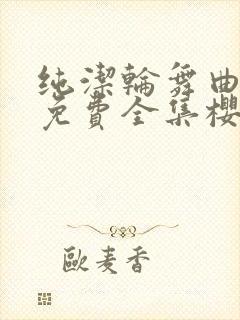 纯潔輪舞曲
免費全集櫻
歐麦香